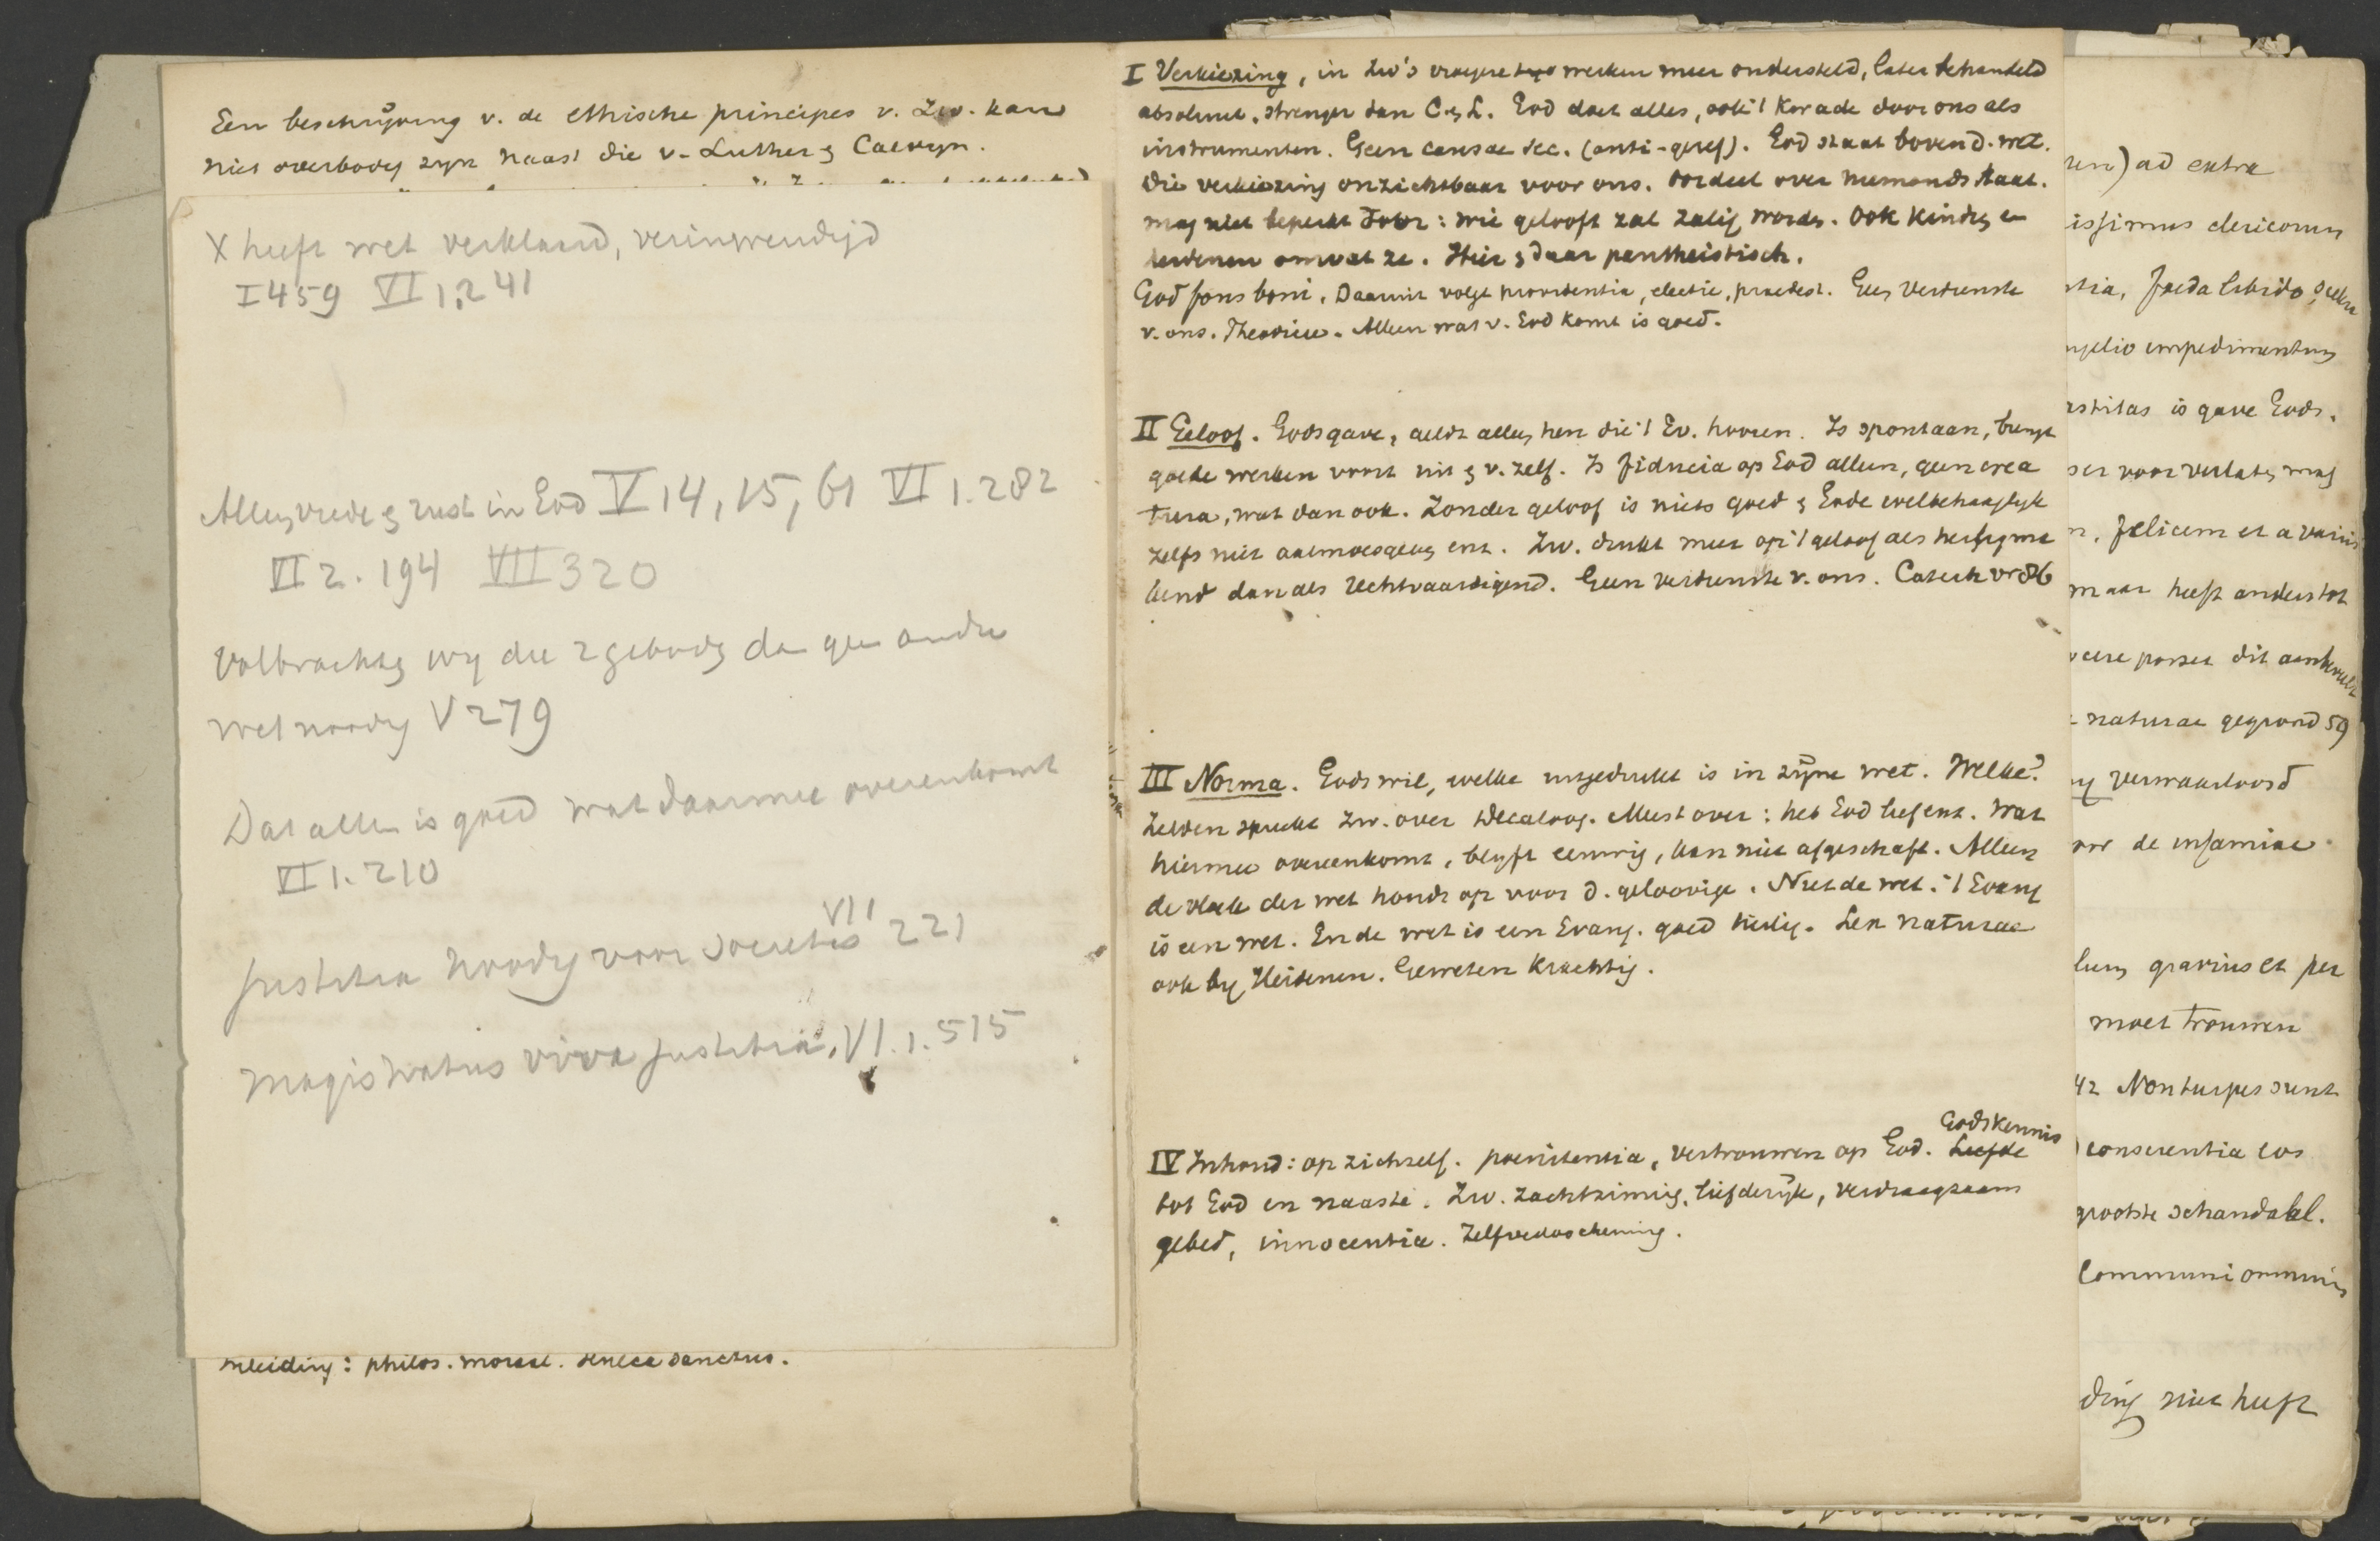 Een beschrijving v. de ethische principes v. Zw. kan
niet overbodig zyn naast die v. Luther & Calvyn.
X heeft wet verklaard, verinwendigd
I 459 VI 1, 241
Alleen vrede & rust in God V 14, 15, 61 VI 1. 282
VI 2. 194 VII 320
Volbrachten wy die 2 geboden dan geen andre
wet noodig V 279
Dat alleen is goed wat daarmee overeenkomt
VI 1. 210
justitia noodig voor societas VII 221
Magistratus viva justitia, VI. 1. 515
inleiding: philos. moraal. Seneca sanctus.
I Verkiezing, in Zw's vroegere werken meer ondersteld, later behandeld
absoluut, strenger dan C. & L. God doet alles, ook 't kwade door ons als
instrumenten. Geen causae sec. (anti-geref). God staat boven d. wet.
Die verkiezing onzichtbaar voor ons. Oordeel over niemands staat.
mag niet beperkt door: wie gelooft zal zalig worden. Ook kindren en
heidenen omvat ze. Hier & daar pantheistisch.
God fons boni. Daaruit volgt providentia, electie, praedest. Geen verdienste
v. ons. Theodicee. Alleen wat v. God komt is goed.
II Geloof. Godsgave, geldt alleen hen die 't Ev. hooren. Is spontaan, brengt
goede werken voort uit & v. zelf. Is fiducia op God alleen, geen crea
tura, wat dan ook. Zonder geloof is niets goed & Gode welbehaaglyk
zelfs niet aalmoesgeven enz. Zw. drukt meer op 't geloof als
dan als rechtvaardigend. Geen verdienste v. ons. Catech vr 86
III Norma. Gods wil, welke uitgedrukt is in zijne wet. Welke?
Zelden spreekt Zw. over Decaloog. Meest over: heb God lief enz. Wat
hiermee overeenkomt, blyft eeuwig, kan niet afgeschaft. Alleen
de vloek der wet houdt op voor d. geloovige. Niet de wet. 't Evang
is een wet. En de wet is een Evang. goed heilig. Lex naturae
ook by Heidenen. Geweten krachtig.
IV Inhoud: op zichzelf. poenitentia, vertrouwen op God. Liefde Godskennis
tot God en naaste. Zw. zachtzinnig, liefderijk, verdraagzaam
gebed, innocentia. Zelfverloochening.
ad extra
issimus clericorum
foeda libido
impedimentum
is gave Gods.
voor verlaten mag
felicem et a
maar heeft anders tot
posset dit
naturae gegrond 59
verwaarloosd
de infamiae
gravius et per
moet trouwen
42 Non turpes sunt
conscientia eos
grootste schandaal.
communi omnium
ding niet heeft